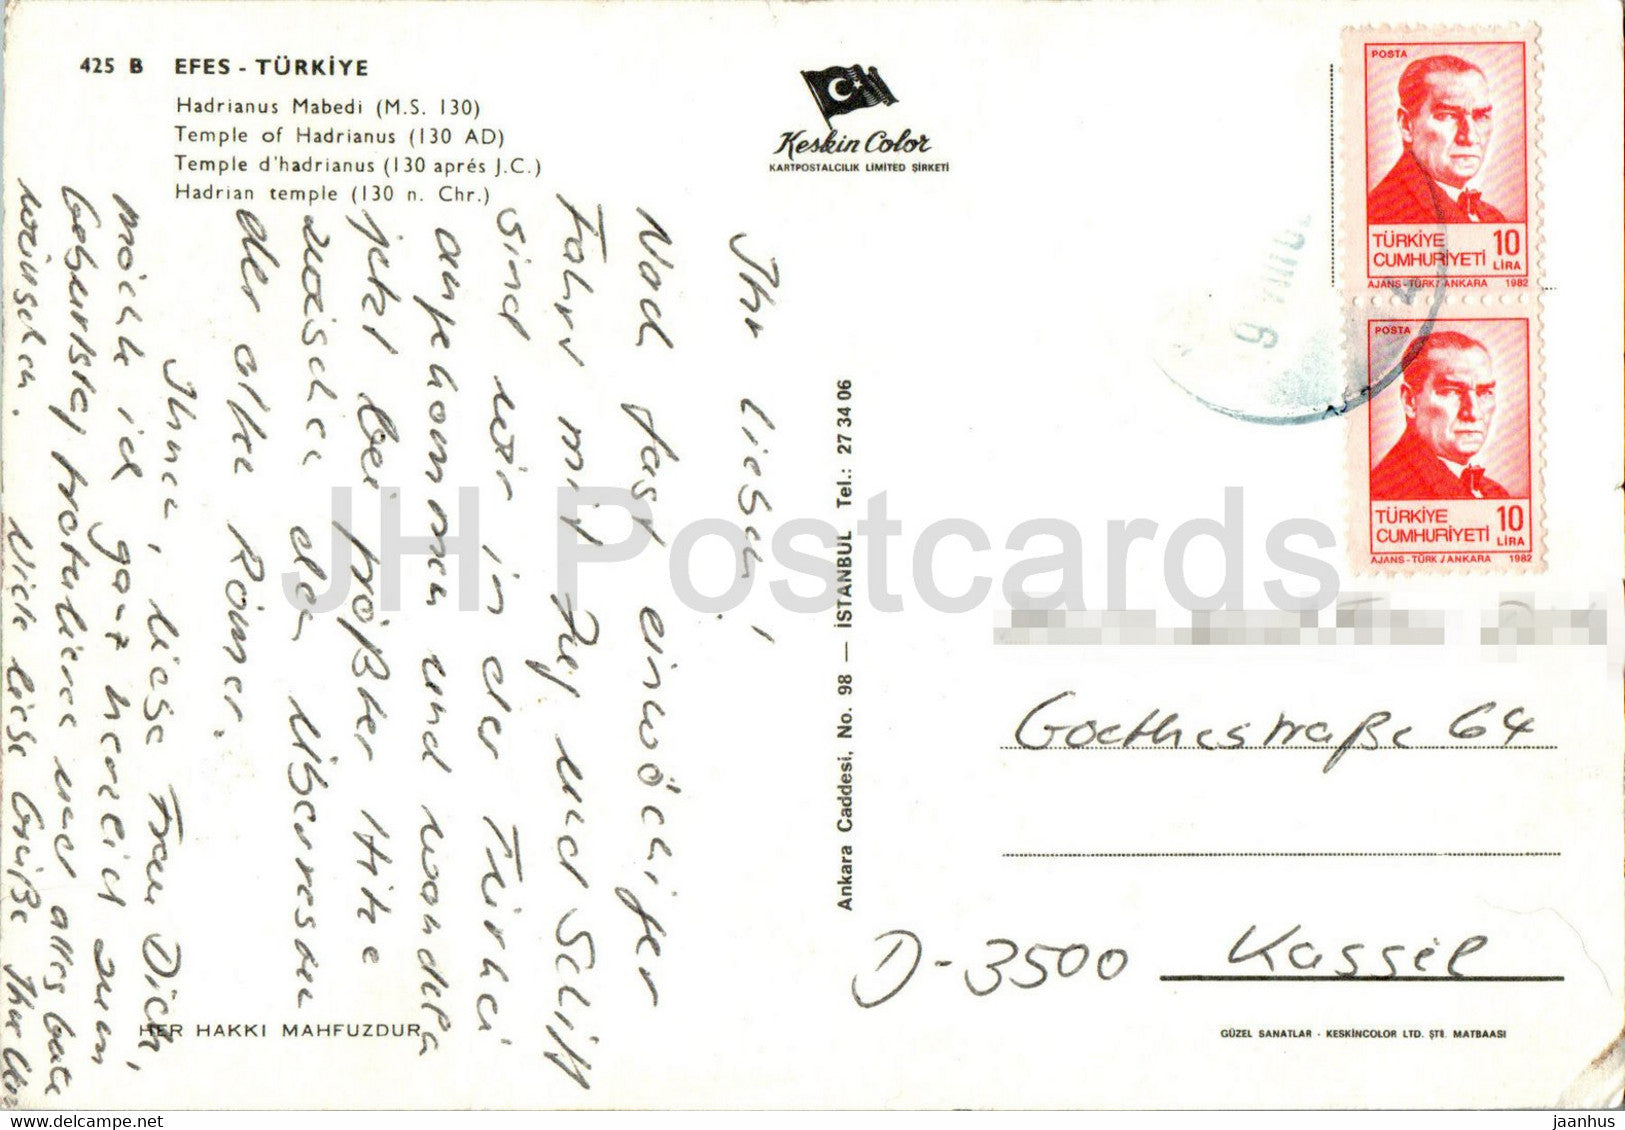 425 B EFES - TÜRKİYE
Hadrianus Mabedi (M.S. 130)
Temple of Hadrianus (130 AD)
Temple d'hadrianus (130 aprés J.C.)
Hadrian temple (130 n. Chr.)
Keskin Color
KARTPOSTALCILIK LIMITED ŞIRKETİ
POSTA
TÜRKİYE
CUMHURİYETİ
10
LİRA
AJANS-TÜRK/ANKARA 1982
POSTA
TÜRKİYE
CUMHURİYETİ
10
LİRA
AJANS-TÜRK/ANKARA 1982
Ihr Lieben!
Nach fast einwöchiger
Fahrt mit Zug und Schiff
sind wir in der Türkei
angekommen und wandeln
jetzt bei größter Hitze
zwischen den Überresten
der alten Römer.
Ihnen, liebe Frau
möchte ich ganz herzlich zum
Geburtstag gratulieren und alles Gute
wünschen. Viele liebe Grüße Ihre
Ankara Caddesi, No. 98 — İSTANBUL Tel.: 27 34 06
Goethestraße 64
D-3500 Kassel
HER HAKKI MAHFUZDUR
GÜZEL SANATLAR - KESKİNCOLOR LTD. ŞTİ. MATBAASI
JH Postcards
www.delcampe.net
jaanhus